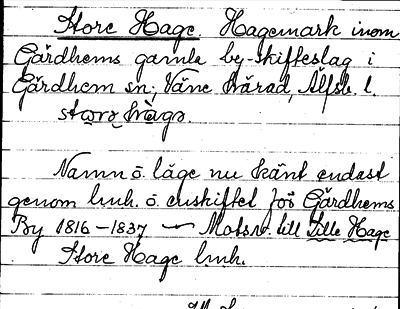 Store Hage. Hagemark inom
Gärdhems gamla by-skifteslag i
Gärdhem sn. Väne härad, Älfsb. l.
Namn o. läge nu känt endast
genom lmh. o. enskiftet för Gärdhems
By 1816-1837 — Motsv. till Lille Hage
Store Hage lmh.